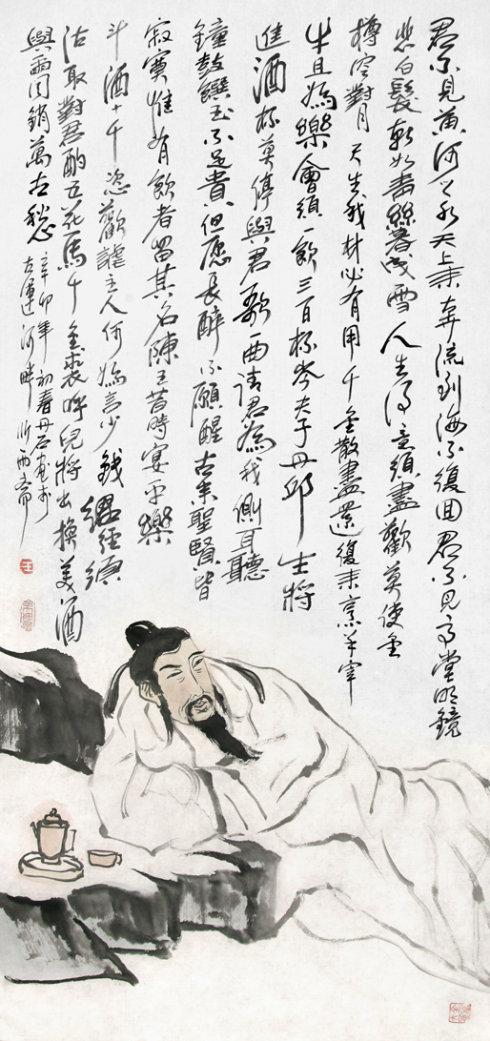 君不見黃河之水天上來奔流到海不復回君不見高堂明鏡
悲白髮朝如青絲暮成雪人生得意須盡歡莫使金
樽空對月天生我材必有用千金散盡還復來烹羊宰
牛且為樂會須一飲三百杯岑夫子丹邱生將
進酒杯莫停與君歌一曲請君為我側耳聽
鐘鼓饌玉不足貴但愿長醉不願醒古來聖賢皆
寂寞惟有飲者留其名陳王昔時宴平樂
斗酒十千恣歡謔主人何為言少錢經須
沽取對君酌五花馬千金裘呼兒將出換美酒
與爾同銷萬古愁
辛卯年初春丹石畫於
古運河畔听雨齋
王